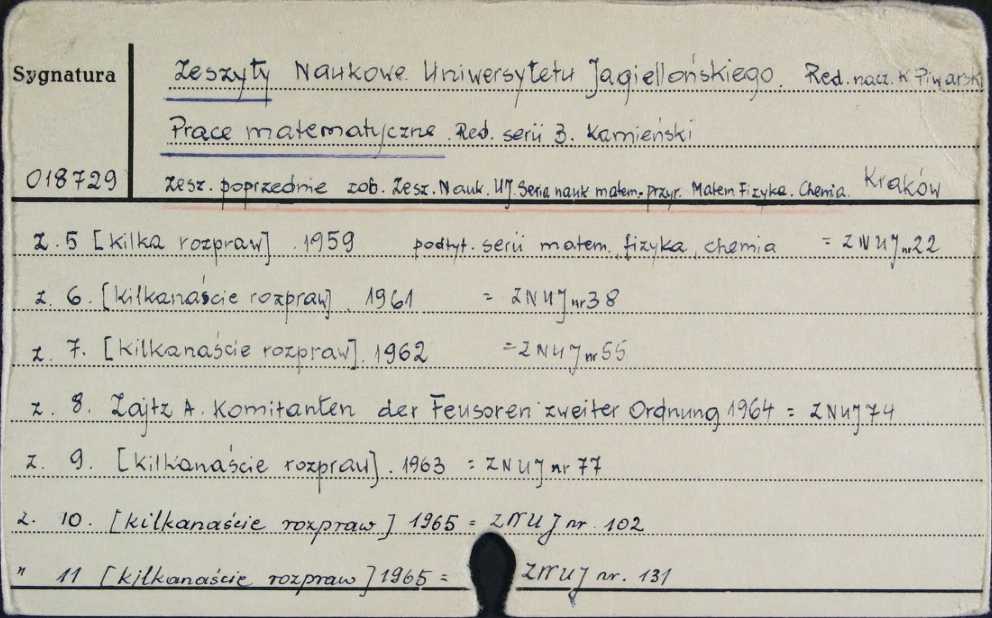 Sygnatura
Zeszyty Naukowe Uniwersytetu Jagiellońskiego. Red. nacz. K Piwarski
Prace matematyczne. Red. serii B. Kamieński
018729
Zesz. poprzednie zob. Zesz. Nauk. UJ. Seria nauk matem.-przyr. Matem Fizyka. Chemia. Kraków
z. 5 [kilka rozpraw] . 1959 podtyt. serii matem., fizyka, chemia = ZNUJ nr 22
z. 6. [kilkanaście rozpraw] . 1961 = ZNUJ nr 38
z. 7. [kilkanaście rozpraw]. 1962 = ZNUJ nr 55
z. 8. Zajtz A. Komitanten der Feusoren zweiter Ordnung 1964 = ZNUJ 74
z. 9. [kilkanaście rozpraw] . 1963 = ZNUJ nr 77
z. 10. [kilkanaście rozpraw] 1965 = ZNUJ nr. 102
" 11 [kilkanaście rozpraw] 1965 = ZNUJ nr. 131